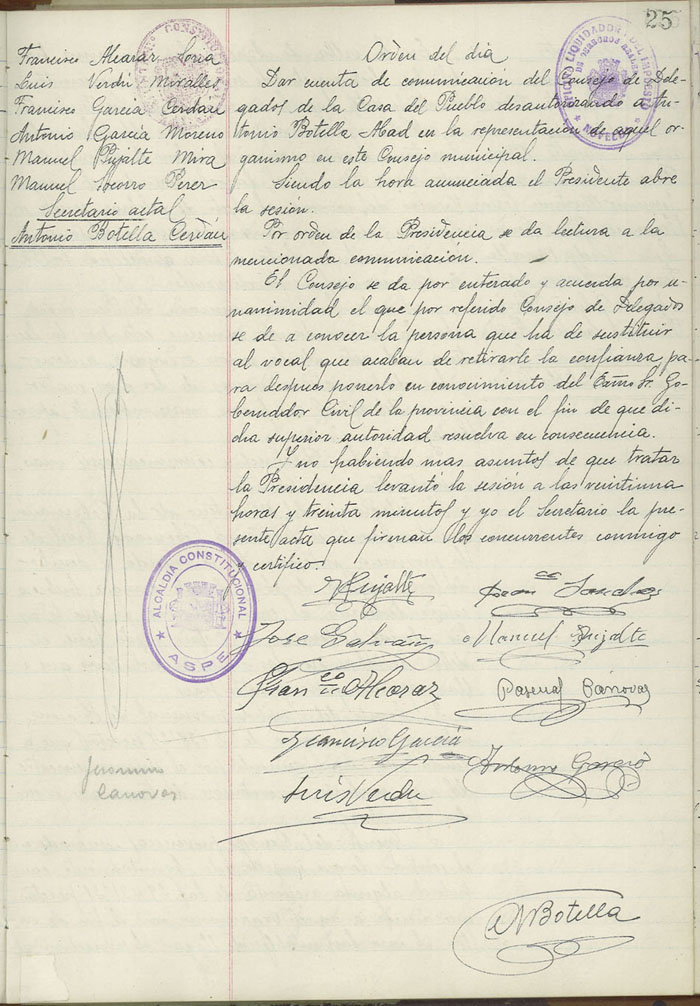 25
Francisco Alcaraz Soria
Luis Verdú Miralles
Francisco García Cerdán
Antonio García Moreno
Manuel Pujalte Mira
Manuel Socorro Perez
Secretario actal
Antonio Botella Cerdán
Orden del dia
Dar cuenta de comunicacion del Consejo de Dele-
gados de la Casa del Pueblo desautorizando a An-
tonio Botella Abad en la representacion de aquel or-
ganismo en este Consejo municipal.
Siendo la hora anunciada el Presidente abre
la sesión.
Por orden de la Presidencia se da lectura a la
mencionada comunicación.
El Consejo se da por enterado y acuerda por u-
nanimidad el que por referido Consejo de Delegados
se de a conocer la persona que ha de sustituir
al vocal que acaban de retirarle la confianza pa-
ra despues ponerlo en conocimiento del Exmo Sr. Go-
bernador Civil de la provincia con el fin de que di-
cha superior autoridad resuelva en consecuencia.
Y no habiendo mas asuntos de que tratar
la Presidencia levantó la sesión a las veintiuna
horas y treinta minutos y yo el Secretario la pre-
sente acta que firman los concurrentes conmigo
y certifico.
ALCALDIA CONSTITUCIONAL
ASPE
Pujalte
Jose Galvañ
Manuel Pujalte
Franco Alcaraz
Pascual Cánovas
Francisco García
Antonio García
Luis Verdu
Jeronimo
Canovas
Botella